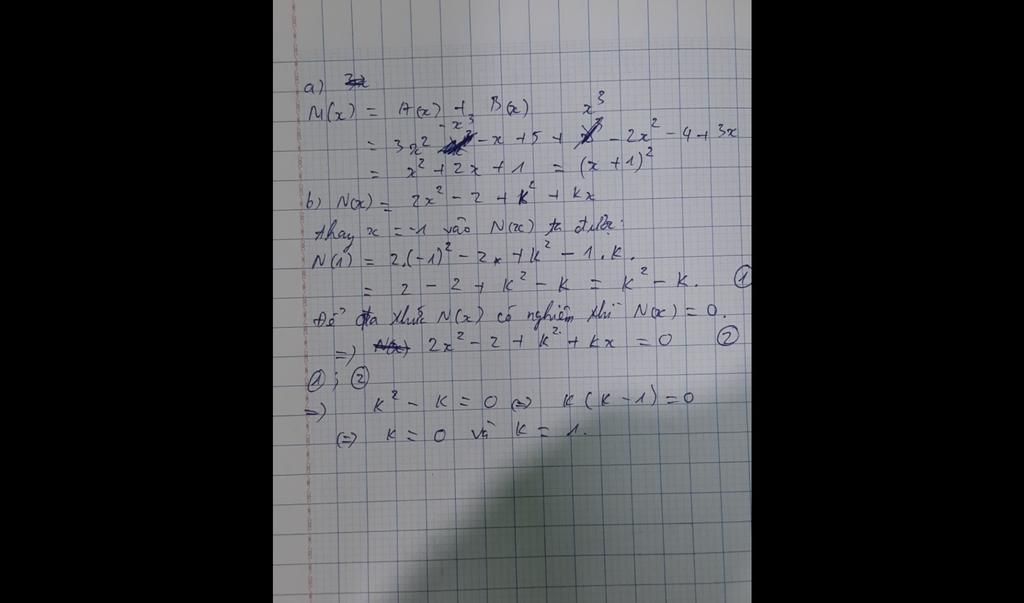 a)
M(x) = A(x) + B(x)
= 3x² - x³ - x + 5 + x³ - 2x² - 4 + 3x
= x² + 2x + 1 = (x + 1)²
b) N(x) = 2x² - 2 + k² + kx
thay x = -1 vào N(x) ta được:
N(1) = 2.(-1)² - 2 + k² - 1.k.
= 2 - 2 + k² - k = k² - k. ①
Để đa thức N(x) có nghiệm thì N(x) = 0.
=> 2x² - 2 + k² + kx = 0 ②
①; ②
=> k² - k = 0 <=> k(k - 1) = 0
<=> k = 0 và k = 1.